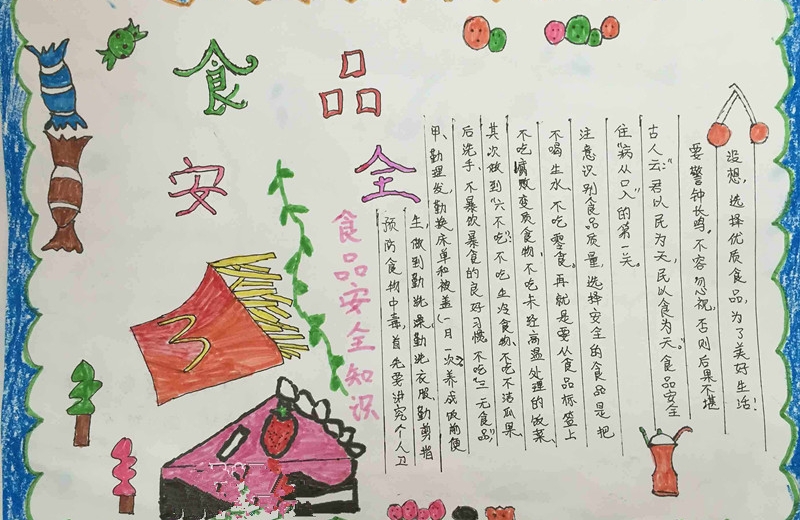 食品
安全
食品安全知识
预防食物中毒,首先要讲究个人卫
生,做到勤洗澡勤洗衣服、勤剪指
甲、勤理发,勤换床单和被盖(一月一次)养成饭前便
后洗手、不暴饮暴食的良好习惯,不吃"三无食品",
其次做到"六不吃":不吃生冷食物、不吃不洁瓜果、
不吃腐败变质食物、不吃未经高温处理的饭菜、
不喝生水、不吃零食。再就是要从食品标签上
注意识别食品质量,选择安全的食品是把
住"病从口入"的第一关。
古人云:"君以民为天,民以食为天。"食品安全
要警钟长鸣,不容忽视,否则后果不堪
设想,选择优质食品,为了美好生活!